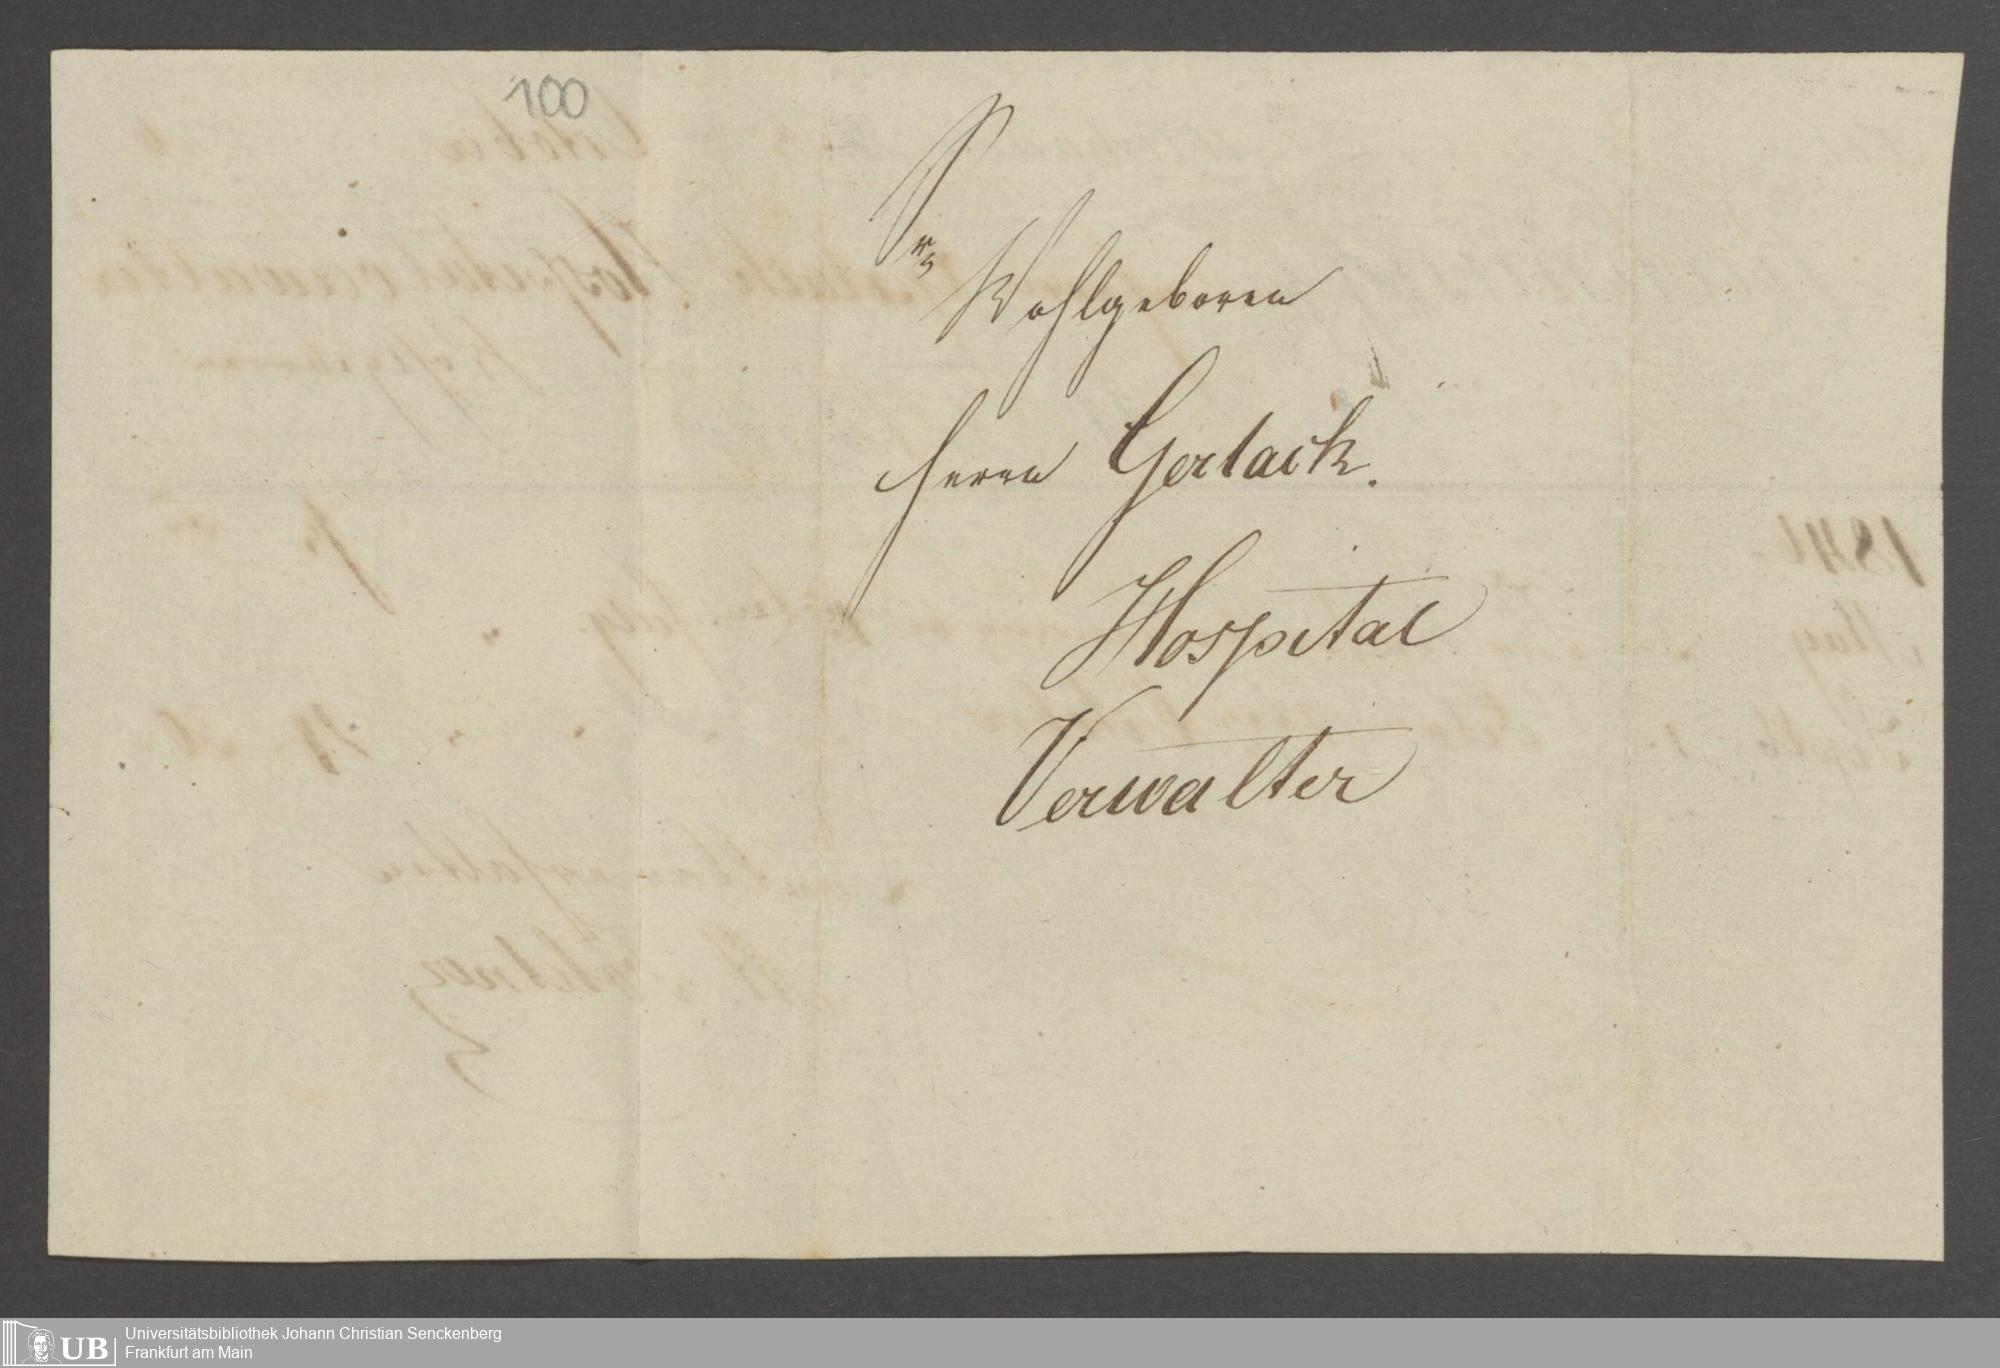 100
Sr
Wohlgeboren
Herrn Gerlach.
Hospital
Verwalter
UB
Universitätsbibliothek Johann Christian Senckenberg
Frankfurt am Main